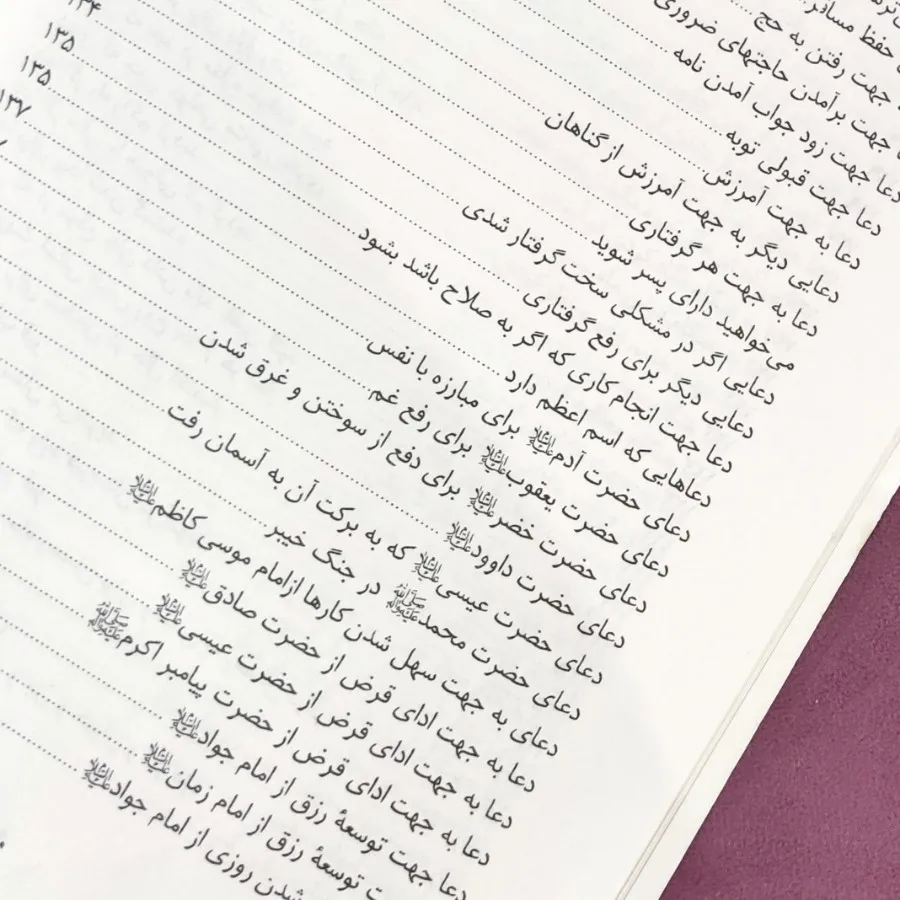 حفظ مسافر
جهت رفتن به حج
جهت برآمدن حاجتهای ضروری
دعا جهت زود جواب آمدن نامه
دعا جهت قبولی توبه
دعا به جهت آمرزش
دعایی دیگر به جهت آمرزش از گناهان
دعا به جهت هر گرفتاری
می‌خواهید دارای پسر شوید
دعایی اگر در مشکلی سخت گرفتار شدی
دعایی دیگر برای رفع گرفتاری
دعا جهت انجام کاری که اگر به صلاح باشد بشود
دعاهایی که اسم اعظم دارد
دعای حضرت آدم علیه‌السلام برای مبارزه با نفس
دعای حضرت یعقوب علیه‌السلام برای رفع غم
دعای حضرت خضر علیه‌السلام برای دفع از سوختن و غرق شدن
دعای حضرت داوود علیه‌السلام
دعای حضرت عیسی علیه‌السلام که به برکت آن به آسمان رفت
دعای حضرت محمد ﷺ در جنگ خیبر
دعای به جهت سهل شدن کارها ازامام موسی کاظم علیه‌السلام
دعا به جهت ادای قرض از حضرت صادق علیه‌السلام
دعا به جهت ادای قرض از حضرت عیسی علیه‌السلام
دعا به جهت ادای قرض از حضرت پیامبر اکرم ﷺ
دعا جهت توسعهٔ رزق از امام جواد علیه‌السلام
توسعهٔ رزق از امام زمان علیه‌السلام
شدن روزی از امام جواد علیه‌السلام
۱۳۴
۱۳۵
۱۳۵
۱۳۷